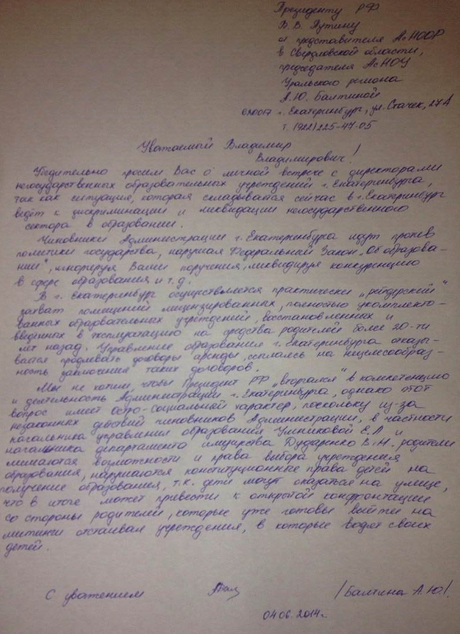 Президенту РФ
В.В. Путину
от представителя АсНООР
в Свердловской области,
председателя АсНОУ
Уральского региона
А.Ю. Балтиной
г. Екатеринбург, ул. Скачек, 27А
т. (922) 225-47-05
Уважаемый Владимир
Владимирович!
Убедительно просим Вас о личной встрече с директорами
негосударственных образовательных учреждений г. Екатеринбурга,
так как ситуация, которая складывается сейчас в г. Екатеринбург
ведёт к дискриминации и ликвидации негосударственного
сектора в образовании.
Чиновники Администрации г. Екатеринбурга идут против
политики государства, нарушая Федеральный Закон „Об образова-
нии", игнорируя Ваши поручения, ликвидируя конкуренцию
в сфере образования и т.д.
В г. Екатеринбург осуществляется практически „рейдерский"
захват помещений лицензированных, полностью укомплекто-
ванных образовательных учреждений, восстановленных и
введенных в эксплуатацию на средства родителей более 10-ти
лет назад. Управление образования г. Екатеринбурга отказы-
вается продлевать договоры аренды, ссылаясь на нецелесообраз-
ность заключения таких договоров.
Мы не хотим, чтобы Президент РФ „вторгался" в компетенцию
и деятельность Администрации г. Екатеринбурга, однако этот
вопрос имеет остро-социальный характер, поскольку из-за
незаконных действий чиновников Администрации, в частности
начальника управления образования Умниковой Е.Л. и
начальника департамента имущества Дударенко В.Н., родители
лишаются возможности и права выбора учреждения
образования, нарушаются конституционные права детей на
получение образования, т.к. дети могут оказаться на улице,
что в итоге может привести к открытой конфронтации
со стороны родителей, которые уже готовы выйти на
митинги отстаивая учреждения, в которые водят своих
детей.
С уважением /Балтина А.Ю./
04.06.2014г.